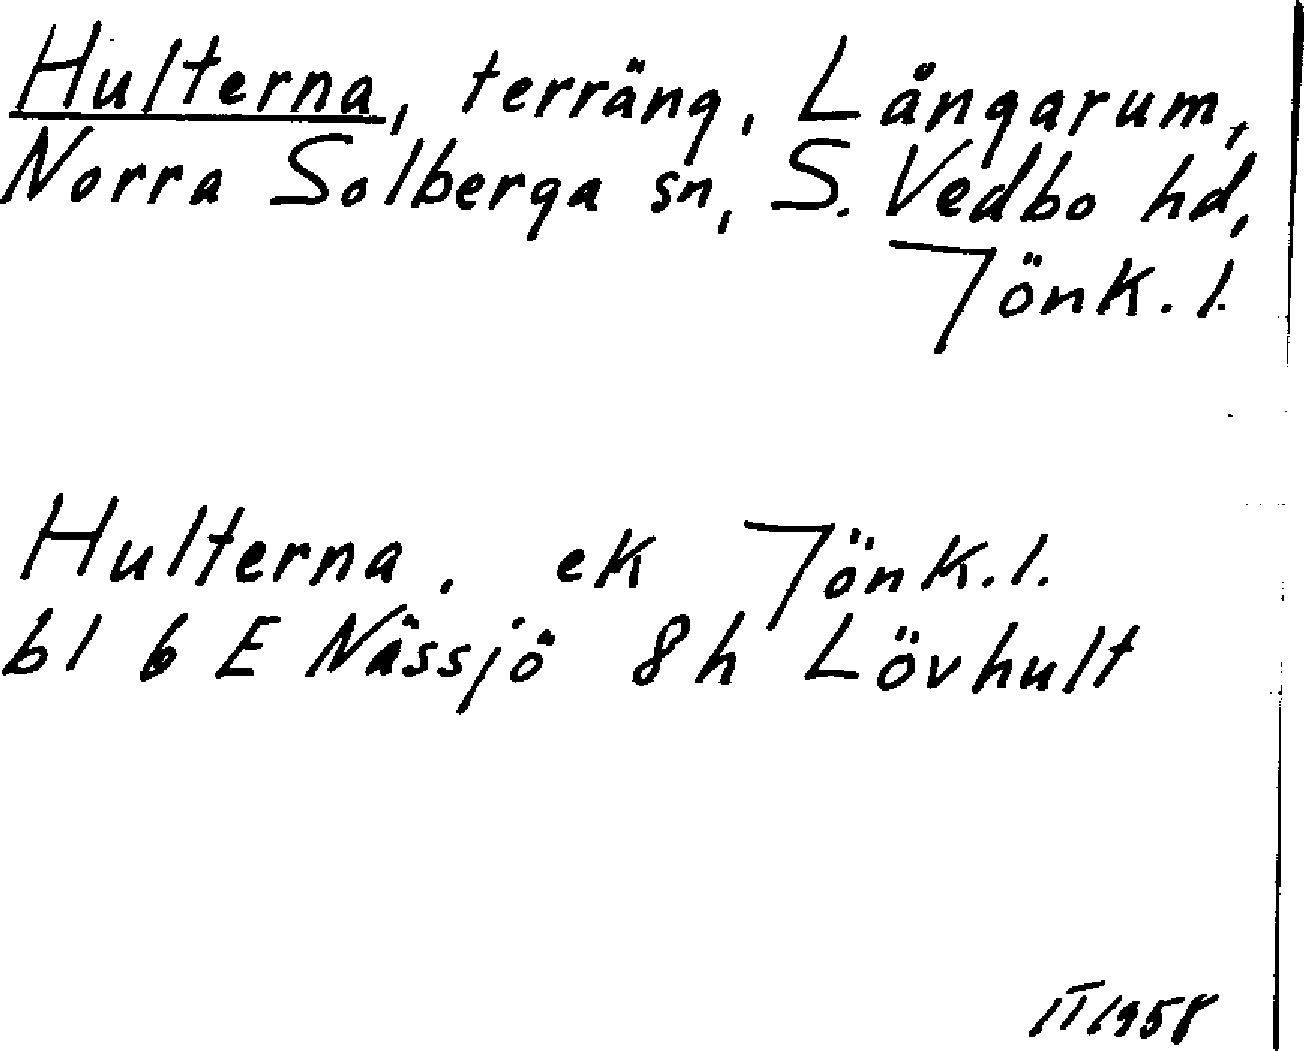 Hulterna, terräng, Långarum,
Norra Solberga sn, S. Vedbo hd,
Jönk. l.
Hulterna. ek Jönk. l.
bl 6 E Nässjö 8h Lövhult
IT 1958